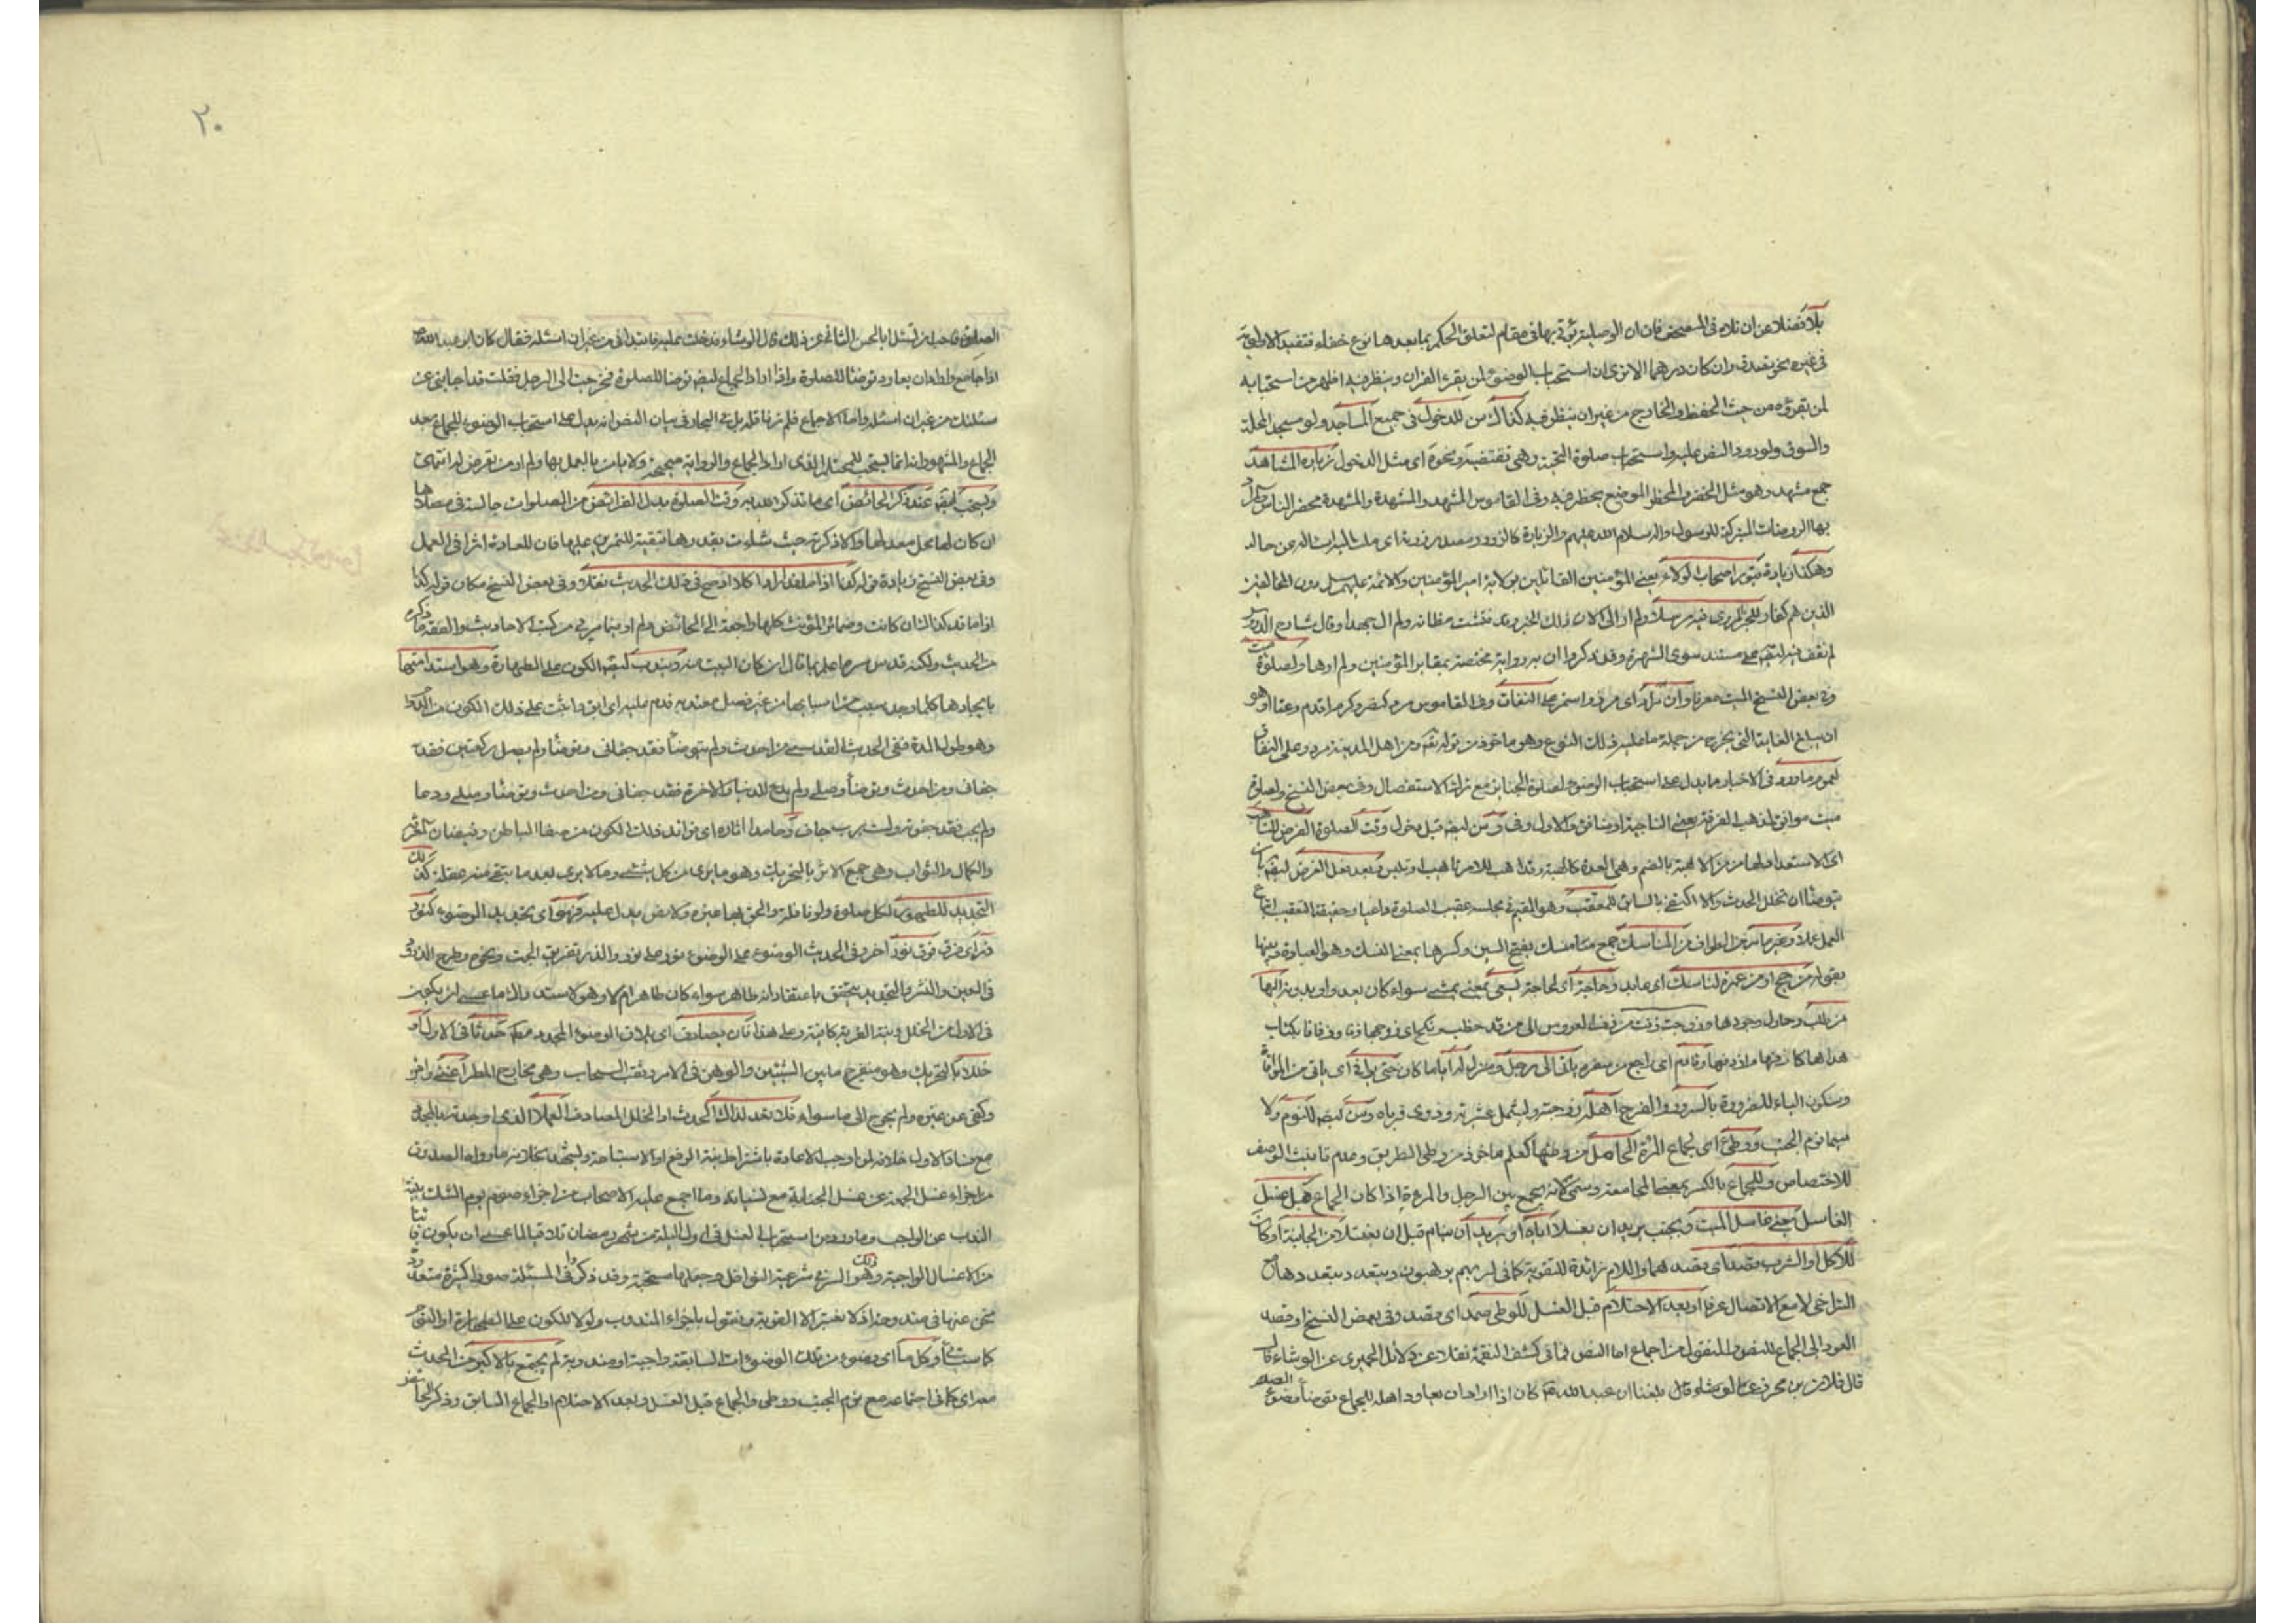 بلا فضلا عن ان تلاه فى المصحف فان ان الوصلية يؤتى بها فى مقام لتعلق الحكم بما بعدها نوع خفاء فتفيد الاولوية
فى غيره نحو تصدق وان كان درهما الا ترى ان استحباب الوضوء لمن يقرء القران وينظر فيه اظهر من استحبابه
لمن يقرؤه من حيث الحفظ والخارج من غير ان ينظر فيه كذاك سن للدخول فى جميع المساجد ولو مسجد المحلة
والسوق ولورود النص عليه واستحباب صلوة التحية وهى تقتضيه ونحوه اى مثل الدخول زيارة المشاهد
جمع مشهد وهو مثل المحضر والمحظر الموضع يحظر فيه وفى القاموس المشهد والمشهدة والمشهدة محضر الناس
بها الروضات المتبركة للرسول واله سلام الله عليهم والزيارة كالزوور مصدر زرته اى ملت اليه لساله عن حاله
وهكذا زيادة قبور اصحاب الولاء يعنى المؤمنين القائلين بولاية امير المؤمنين والائمة عليهم سل دون المخالفين
الذين هم كفار للخبر المروى فيه مرسلا ولم ار الى الان ذلك الخبر وقد فتشت مظانه ولم ال جهدا وقال شارح الدروس
لم نقف فيه على مستند سوى الشهرة وقد ذكروا ان به رواية مختصة بمقابر المؤمنين ولم ارها ولصلوة
وفى بعض النسخ الميت معرفا وان مرد اى مرد واستمر على النفاق وفى القاموس مرد كنصر وكرم اقدم وعتا او هو
ان يبلغ الغاية التى يخرج من جملة ما عليه ذلك النوع وهو ماخوذ من قوله تعالى ومن اهل المدينة مردوا على النفاق
لعموم ما ورد فى الاخبار ما يدل على استحباب الوضوء لصلوة الجنايز مع ترك الاستفصال وفى بعض النسخ ولصلوة
ميت موافق لمذهب الفرقة يعنى الناجية او منافق والاول وفق وسن ايضا قبل دخول وقت الصلوة الفرض للتاهب
اى الاستعداد لها من الاهبة بالضم وهى العدة كالهبة وقد اهب للامر تاهيبا وتاهب وبعد فعل الفرض ايضا بان
يتوضا ان تخلل الحدث والا اكتفى بالسابق للمعقب وهو المقيم فى مجلسه عقيب الصلوة داعيا وحقيقة التعقيب اتباع
العمل عملا وبغير ما مر من الطواف من المناسك جمع منسك بفتح السين وكسرها بمعنى النسك وهو العبادة وبينها
بقوله من حج او من عمرة لناسك اى عابد وحاجة اى لحاجة يسعى بمعنى يمشى سواء كان يعدو او يدونه اليها
من طلب وحاول وجودها
هداها كازفها وازدفها وقادم اى راجع من سفره ياتى الى رحل ومنزل له اياما كان حتى يوافى اى ياتى من الموافاة
وسكون الياء للضرورة بالسرور والفرح اهله زوجته وليشمل عشيرته وذوى قرباه وسن ايضا للنوم ولا
سيما نوم الجنب ووطئ اى لجماع المرئة الحامل من وطئها كعلم ماخوذ من وطى الطريق وعدم تانيث الوصف
للاختصاص وللجماع بالكسر بمعنى المجامعة وسمى لانه يجمع بين الرجل والمرءة اذا كان الجماع قبل غسل
الغاسل يعنى غاسل الميت ويجنب يريد ان يغسلا اياه او يريد ان ينام قبل ان يغتسل من الجنابة او كان
للاكل او الشرب مقصدا اى يقصدهما واللام زائدة للتقوية كما فى لربهم يرهبون ويبعد
التراخى لا مع الاتصال عرفا او بعد الاحتلام قبل الغسل للوطى صمد اى قصد وفى بعض النسخ او قصد
العود الى الجماع للنص والمنقول من اجماع اما النص فما فى كشف الغمة نقلا عن دلائل الحميرى عن الوشاء قال
قال فلان بن محرز عن الوشاء قال بلغنا ان عبد الله ع كان اذا اراد ان يعاود اهله للجماع توضأ وضوء الصلوة
٢٠
الصلوة فاحب ان تسئل ابا الحسن الثانى عن ذلك قال الوشاء فدخلت عليه فابتدانى من غير ان اسئله فقال كان ابو عبد الله
اذا جامع واراد ان يعاود توضأ للصلوة واذا اراد الجماع ايضا توضا للصلوة فخرجت الى الرجل فقلت قد اجابنى عن
مسئلتك من غير ان اسئله واما الاجماع فلم نر ناقله بل فى البحار فى بيان النص انه يدل على استحباب الوضوء للجماع بعد
الجماع والمشهور انه انما يستحب للمحتلم الذى اراد الجماع والرواية صحيحة ولا باس بالعمل بها ولم ار من تعرض له انتهى
ويستحب ايضا عند ذكر الحائض اى ما تذكر الله به وقت الصلوة بدل الفرائض من الصلوات جالسة فى مصلاها
ان كان لها محل معد لها والا ذكرته حيث شاءت بقدرها تبقية للتمرين عليها فان للعادة اثرا فى العمل
وفى بعض النسخ زيادة قوله كذا اذا ما قد اراد اكلا اوضح فى ذلك الحديث نقلا وفى بعض النسخ مكان قوله كذا
اذا ما قد كذا الشان كانت وضمائر المؤنث كلها راجعة الى الحائض ولم ار فيما يرى من كتب الاحاديث والفقه ما ذكره
من الحديث ولكنه قدس سره اعلم بما قال ان كان البيت منه ويندب ايضا الكون على الطهارة وهو استدامتها
بايجادها كلما وجد سبب من اسبابها من غير فصل معتد به قدم عليه اى ابق واثبت على ذلك الكون من الدوام
وهو طول المدة ففى الحديث القدسى من احدث ولم يتوضأ فقد جفانى ومن توضأ ولم يصل ركعتين فقد
جفانى ومن احدث وتوضأ وصلى ولم يدع للدنيا والاخرة فقد جفانى ومن احدث وتوضأ وصلى ودعا
ولم اجب فقد جفوته ولست برب جاف وحامدا اثاره اى فوائد ذلك الكون من صفاء الباطن وفيضان
والكمال والثواب وهى جمع الاثر بالتحريك وهو ما يرى من كل شىء وما لا يرى بعد ما يبقى منه عقلا كذلك
التجديد للطهور لكل صلوة ولو نافلة والحق بها غيره ولا نص يدل عليه فهو اى تجديد الوضوء كنور
زيد اى فرق فوق نور اخر وفى الحديث الوضوء على الوضوء نور على نور والذر تفريق الحب ونحوه وطرح الذرور
فى العين والنشر والتجديد يتحقق باعتقاد انه طاهر سواء كان طاهرا ام لا وهو لاستدراك ما عسى ان يكون
فى الاول من الخلل ونية القربة كافية وعلى هذا فان يصادف اى يلاق الوضوء المجدد معه حدثا فى الاول او
خللا بالتحريك وهو منفرج ما بين الشيئين والوهن فى الامر وثقب السحاب وهى مخارج المطر اغنى واجزء
وكفى عن غيره ولم يحوج الى ما سواه فلا يعد لذاك الحدث او الخلل المصادف العملا الذى اوجدته بالمجدد
مع فساد الاول خلافه لمن اوجب الاعادة باشتراط نية الرفع او الاستباحة وليشهد بخلافه ما رواه الصدوق
من اجزاء غسل الجمعة عن غسل الجنابة مع نسيانه وما اجمع عليه الاصحاب من اجزاء صوم يوم الشك بنية
الندب عن الواجب وما ورد من استحباب الغسل فى اول ليلة من شهر رمضان تلافيا لما عسى ان يكون فائتا
من الاغسال الواجبة وهو السر فى شرعية النوافل وجعلها مستحبة وقد ذكروا فى المسئلة صورا كثيرة متعددة
نحن عنها فى مندوحة اذ لا نعتبر الا القربة ونقول باجزاء المندوب ولو لا للكون على الطهارة او النوم
كما سيأتى وكل ما اى وضوء من تلك الوضوءات السابقة واجبة او مندوبة لم يجتمع بالاكبر من الحدث
معه اى كما فى اجتماعه مع نوم الجنب ووطى والجماع قبل الغسل وبعد الاحتلام او الجماع السابق وذكر الحائض